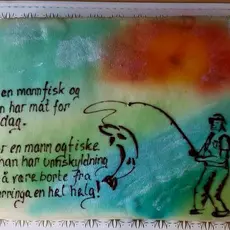 en mann fisk og
n har mat for
dag.
r en mann og fiske
han har unnskyldning
å være borte fra
erringa en hel helg!